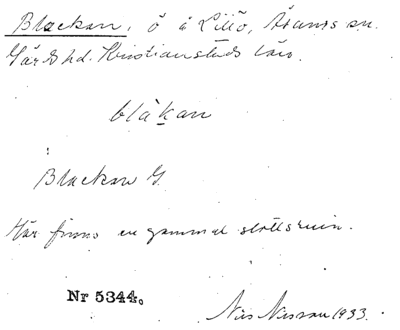 Blackan, ö å Lillö, Åraurs sn.
Gärds hd. Kristianstads län.
blàkan
Blackan G.
Här finns en gammal slottsruin.
Nr 5344.
Nils Nessau 1933.